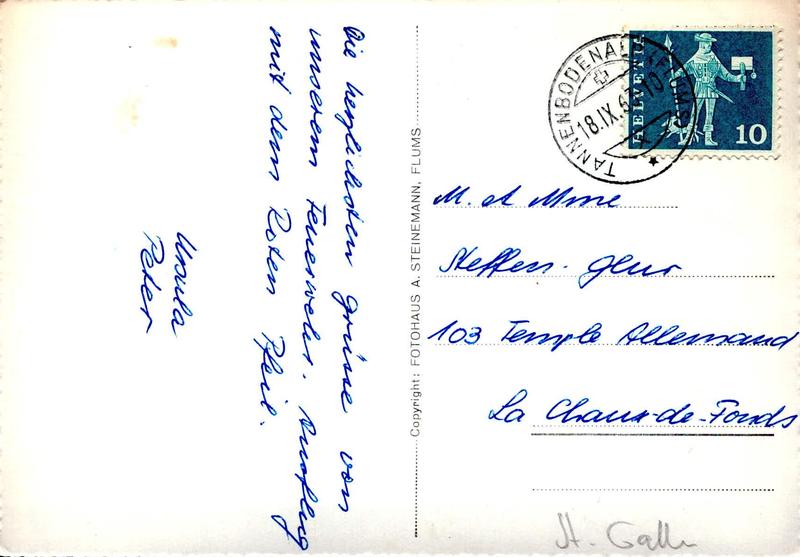 Die herzlichsten Grüsse von
unserem Feuerwehr. Ausflug
mit dem Roten Pfeil.
Ursula
Peter
Copyright: FOTOHAUS A. STEINEMANN, FLUMS
HELVETIA
10
TANNENBODENALP (FLUMS)
18.IX.6 -10
M. et Mme
Steffen-Glur
103 Temple Allemand
La Chaux-de-Fonds
St. Galln